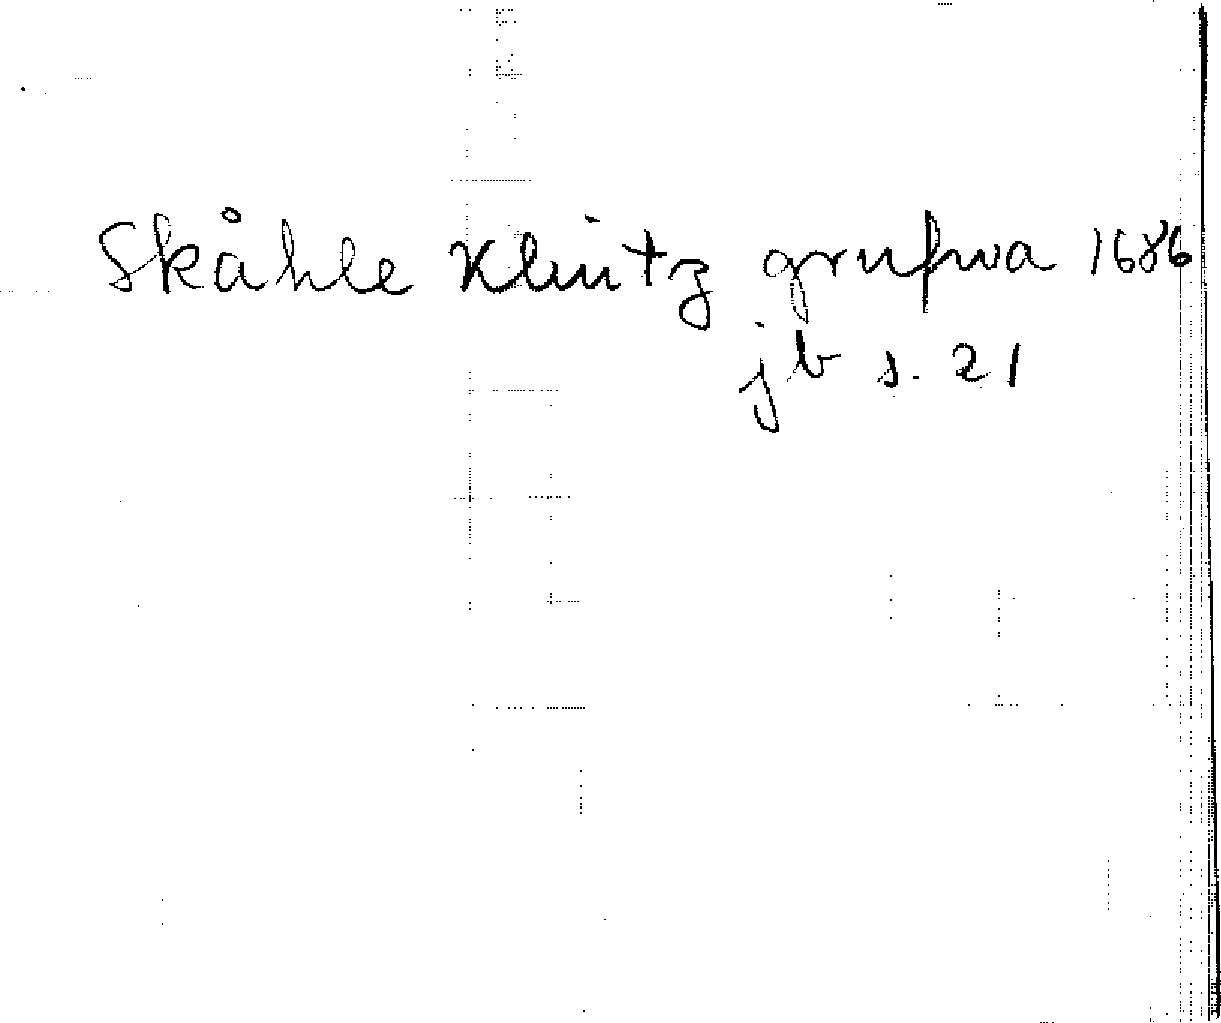 Skåhle Klintz grufwa 1686
jb s. 21